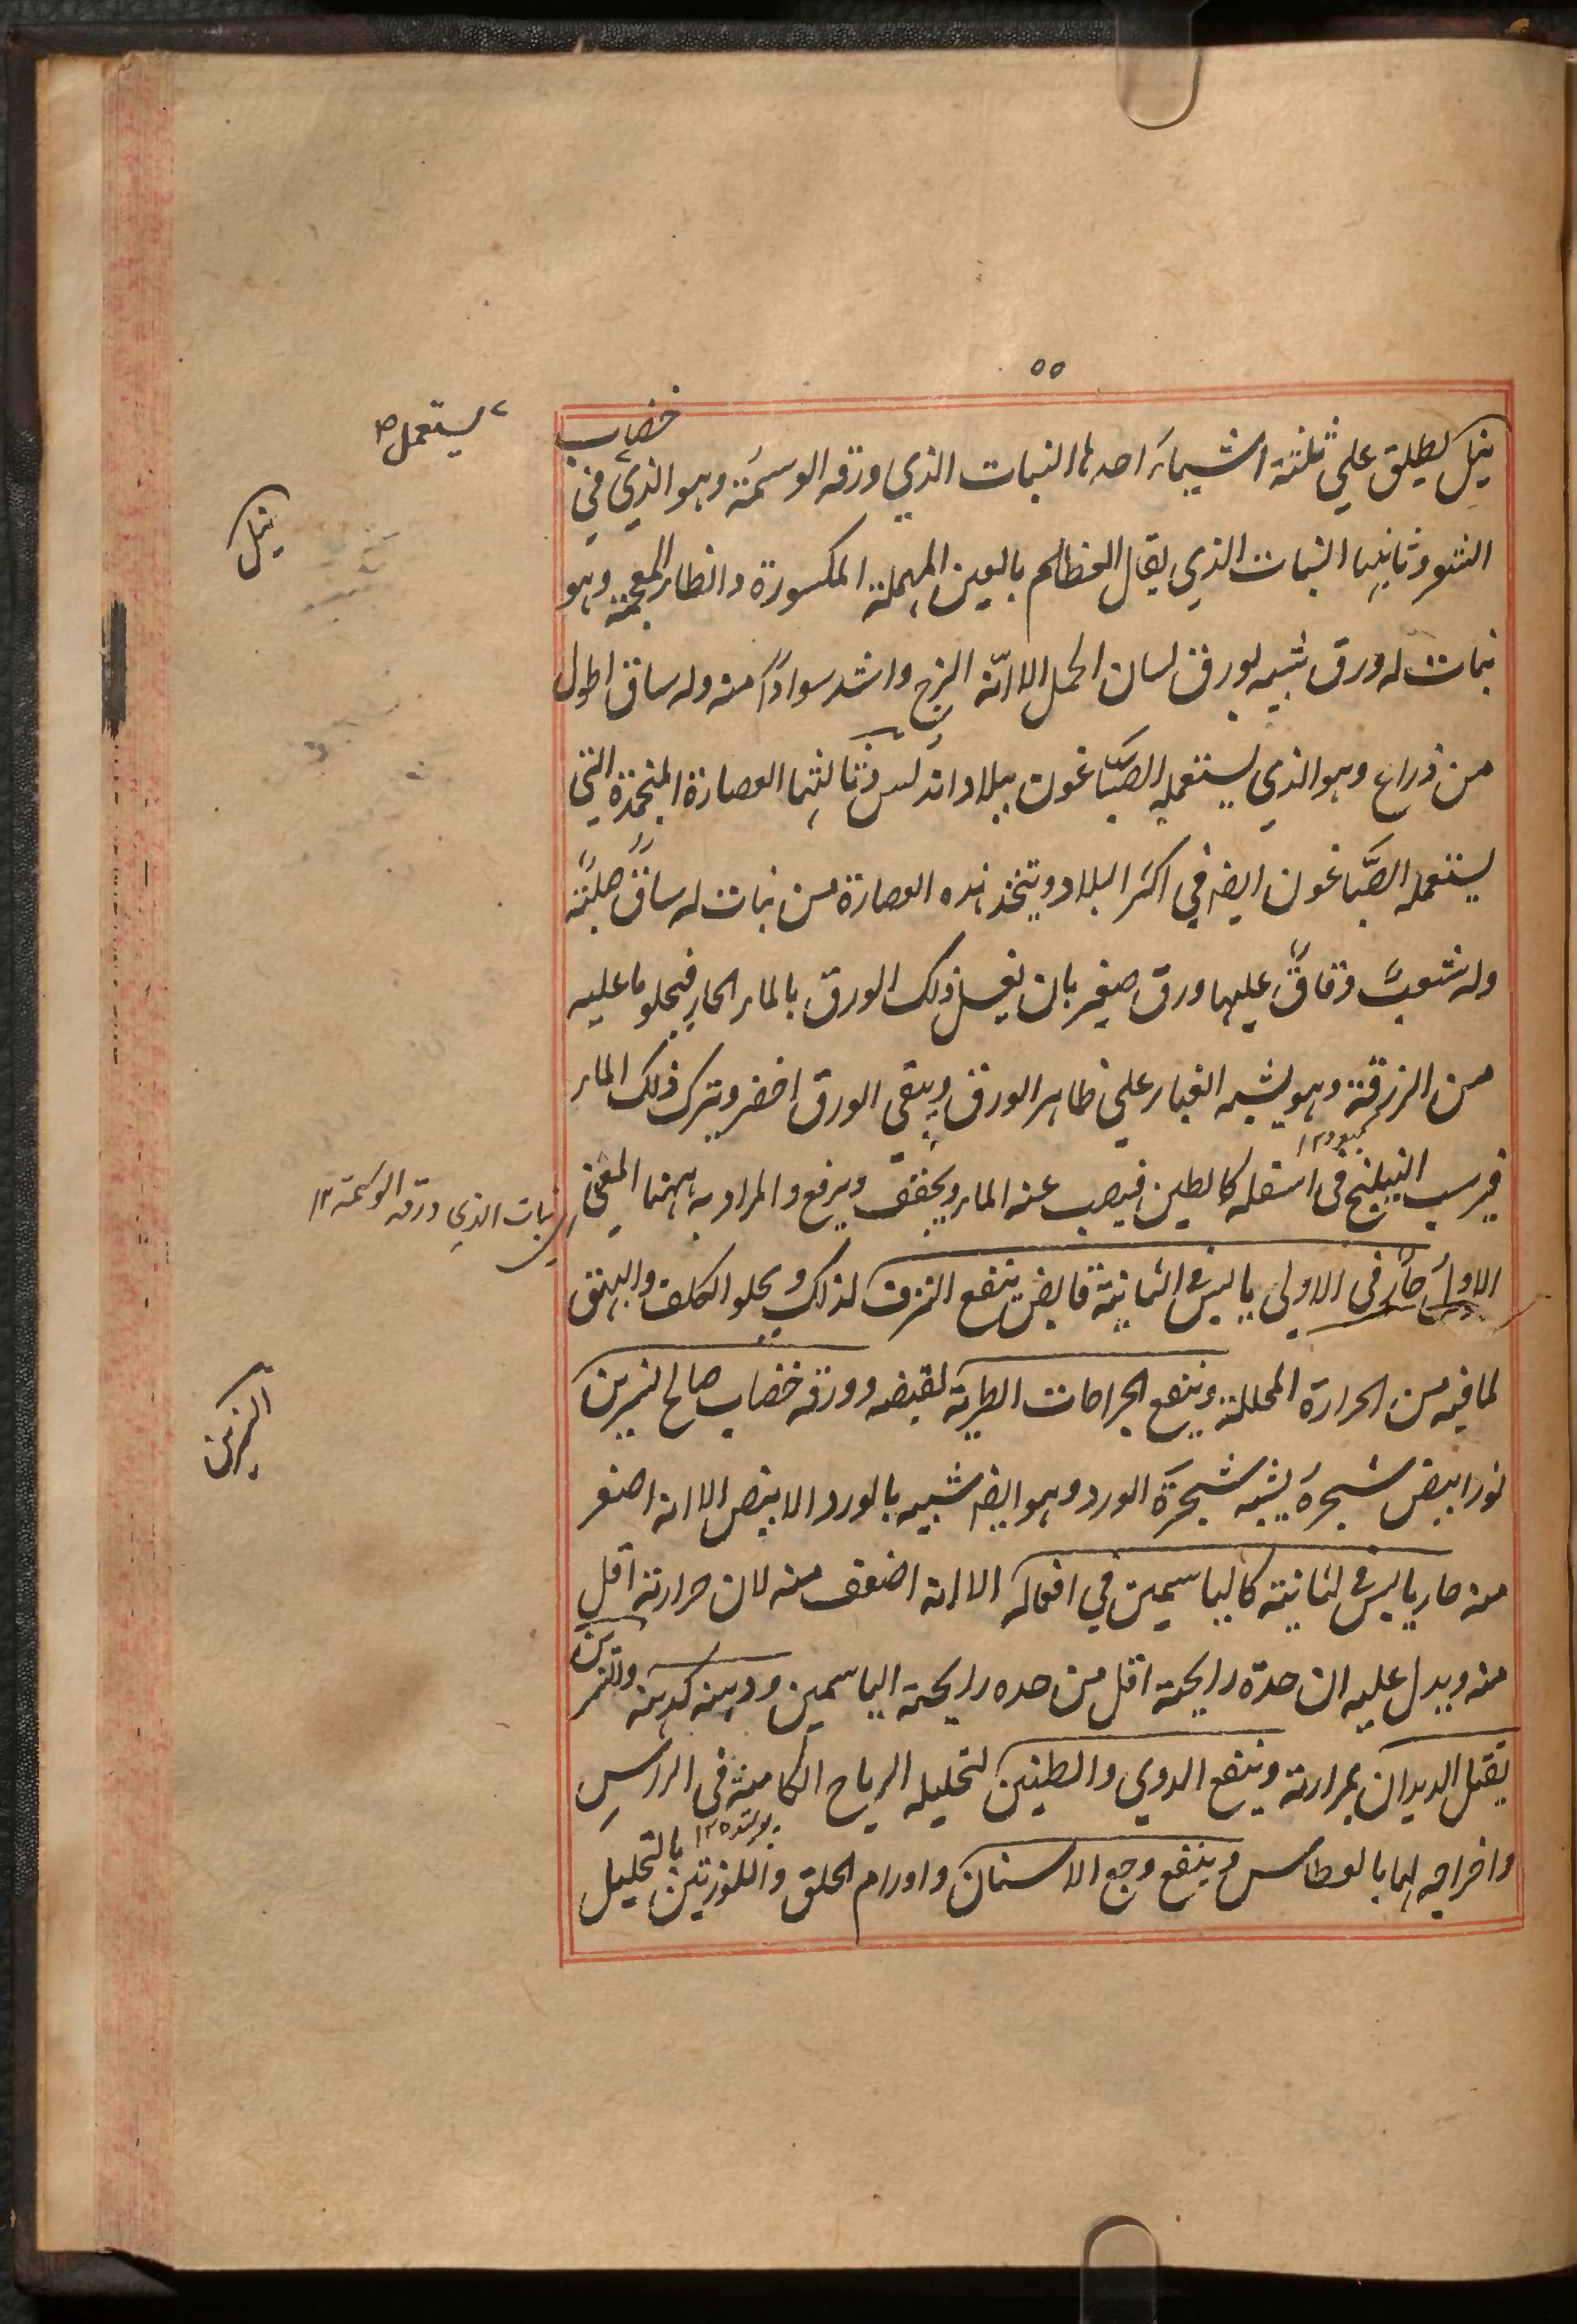 ٥٥
يستعمل ص
نيل يطلق علي ثلثة اشياء احدها النبات الذي ورقه الوسمة وهو الذي في خضاب
نيل
الشعر وثانيها النبات الذي يقال العظلم بالعين المهملة المكسورة والظاء المعجمة وهو
نبات له ورق شبيه بورق لسان الحمل الا انّه الزج واشد سوادًا منه وله ساق اطول
من ذراع وهو الذي يستعمله الصبّاغون ببلاد اندلس وثالثها العصارة المنجمدة التي
يستعمله الصبّاغون ايضا في اكثر البلاد ويتخذ هذه العصارة من نبات له ساق صلبة
وله شعب دقاق عليها ورق صغير بان يغسل ذلك الورق بالماء الحار فيحلو ما عليه
من الزرقة وهو يشبه الغبار علي ظاهر الورق ويبقي الورق اخضر ويترك ذلك الماء
فيرسب النيلنج في اسفله كالطين فيصب عنه الماء ويجفف ويرفع والمراد به ههنا المعني
كبود ١٢
اي النبات الذي ورقه الوسمة ١٢
الاول حار في الاولي يابس في الثانية قابض ينفع النزف لذلك ويحلو الكلف والبهق
لما فيه من الحرارة المحللة وينفع الجراحات الطرية لقبضه وورقه خضاب صالح نسرين
النسرين
نور ابيض شجره يشبه شجرة الورد وهو ايضا شبيه بالورد الابيض الا انه اصغر
منه حار يابس في الثانية كالياسمين في افعاله الا انه اضعف منه لان حرارته اقل
منه ويدل عليه ان حدة رايحته اقل من حده رايحة الياسمين ودهنه كدهنه والنسرين
يقتل الديدان بمرارته وينفع الدوي والطنين لتحليله الرياح الكامنة في الراس
واخراجه لها بالعطاس وينفع وجع الاسنان واورام الحلق واللوزتين بالتحليل